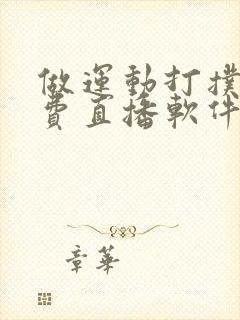 做運動打撲
費直播軟件
章華